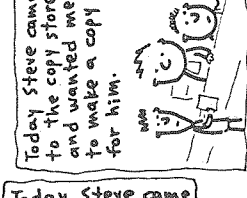 Today Steve came
to the copy store
and wanted me
to make a copy
for him.
Today Steve came